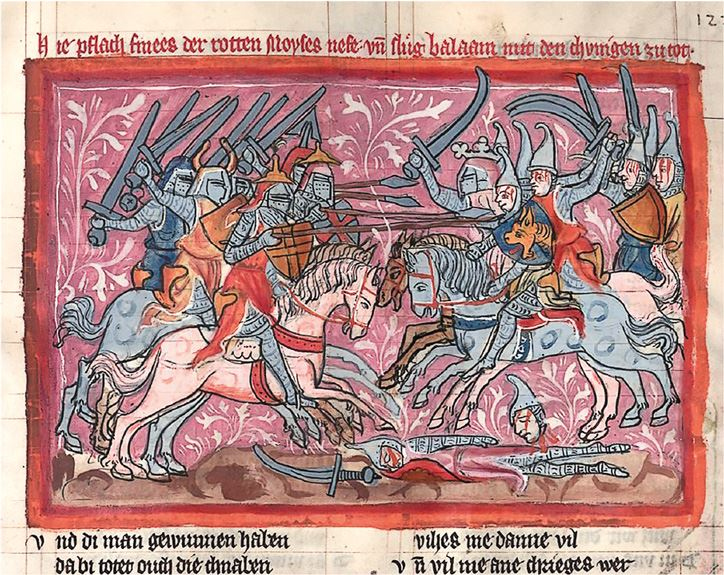 12
Hie pflach finees der rotten Moyses nefe · vn̄ slůg balaam mit den chvnigen zu tot ·
v nd di man gewunnen haben
da bi totet ouch die chnaben
vihes me danne vil
v n̄ vil me ane chrieges wer